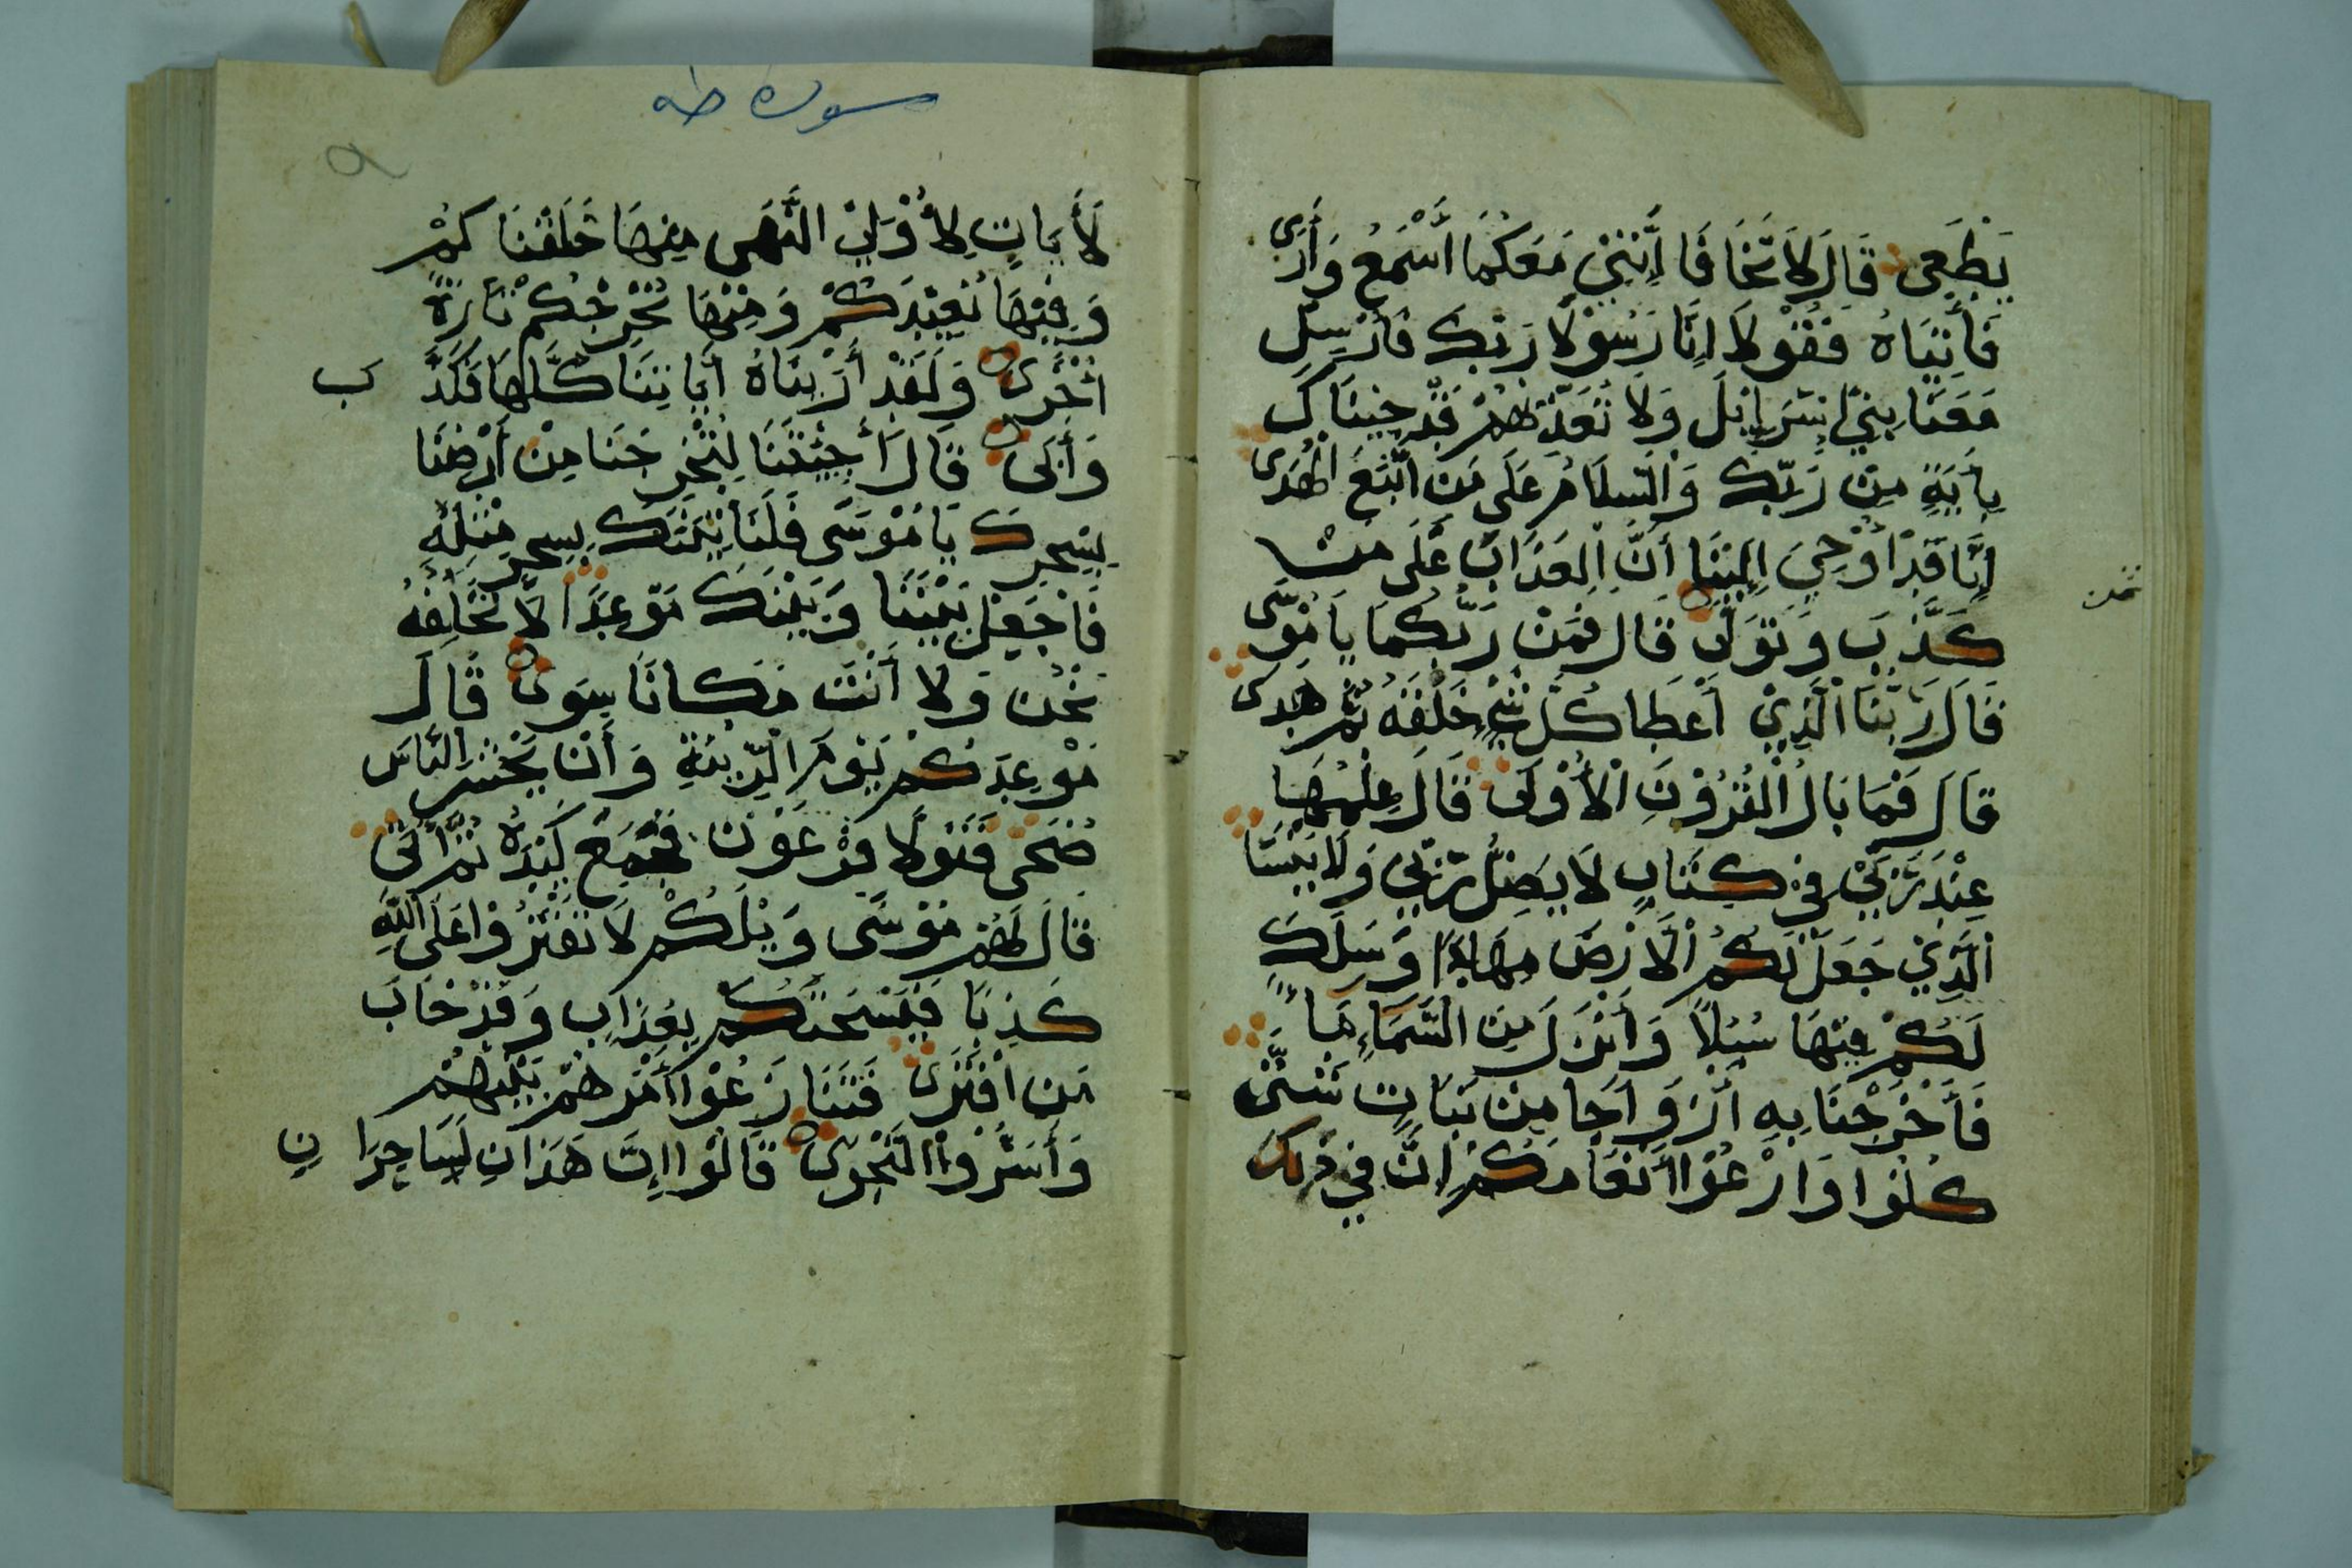 يَطْغَى قَالَ لَا تَخَافَا إِنَّنِي مَعَكُمَا أَسْمَعُ وَأَرَى
فَأْتِيَاهُ فَقُولَا إِنَّا رَسُولَا رَبِّكَ فَأَرْسِلْ
مَعَنَا بَنِي إِسْرَايِلَ وَلَا تُعَذِّبْهُمْ قَدْ جِينَاكَ
بِأَيَةٍ مِنْ رَبِّكَ وَالسَّلَامُ عَلَى مَنِ اتَّبَعَ الْهُدَى
إِنَّا قَدْ أُوْحِيَ إِلَيْنَا أَنَّ الْعَذَابَ عَلَى مَنْ
ثمن
كَذَّبَ وَتَوَلَّى قَالَ فَمَنْ رَبُّكُمَا يَا مُوسَى
قَالَ رَبُّنَا الَّذِي أَعْطَا كُلَّ شَيْءٍ خَلْقَهُ ثُمَّ هَدَى
قَالَ فَمَا بَالُ الْقُرُونِ الْأُوْلَى قَالَ عِلْمُهَا
عِنْدَ رَبِّي فِي كِتَابٍ لَا يَضِلُّ رَبِّي وَلَا يَنْسَا
الَّذِي جَعَلَ لَكُمُ الْأَرْضَ مِهَادًا وَسَلَكَ
لَكُمْ فِيهَا سُبُلًا وَأَنْزَلَ مِنَ السَّمَاءِ مَاءً
فَأَخْرَجْنَا بِهِ أَزْوَاجًا مِنْ نَبَاتٍ شَتَّى
كُلُوا وَارْعَوْا أَنْعَامَكُمْ إِنَّ فِي ذَلِكَ
سورة طه
لَأَيَاتٍ لِأُوْلِي النُّهَى مِنْهَا خَلَقْنَاكُمْ
وَفِيْهَا نُعِيْدُكُمْ وَمِنْهَا نُخْرِجُكُمْ تَارَةً
أُخْرَى وَلَقَدْ أَرَيْنَاهُ أَيَاتِنَا كُلَّهَا فَكَذَّ ب
وَأَبَى قَالَ أَجِئْتَنَا لِتُخْرِجَنَا مِنْ أَرْضِنَا
بِسِحْرِكَ يَا مُوْسَى فَلَنَأْتِيَنَّكَ بِسِحْرٍ مِثْلِهِ
فَاجْعَلْ بَيْنَنَا وَبَيْنَكَ مَوْعِدًا لَا نُخْلِفُهُ
نَحْنُ وَلَا أَنْتَ مَكَانًا سِوَى قَالَ
مَوْعِدُكُمْ يَوْمُ الزِّيْنَةِ وَأَنْ يُحْشَرَ النَّاسُ
ضُحَى فَتَوَلَّا فِرْعَوْنُ فَجَمَعَ كَيْدَهُ ثُمَّ أَتَى
قَالَ لَهُمْ مُوْسَى وَيْلَكُمْ لَا تَفْتَرُوْا عَلَى اللَّهِ
كَذِبًا فَيُسْحِتَكُمْ بِعَذَابٍ وَقَدْ خَابَ
مَنِ افْتَرَى فَتَنَازَعُوْا أَمْرَهُمْ بَيْنَهُمْ
وَأَسَرُّوا النَّجْوَى قَالُوْا إِنَّ هَذَانِ لَسَاحِرَا نِ